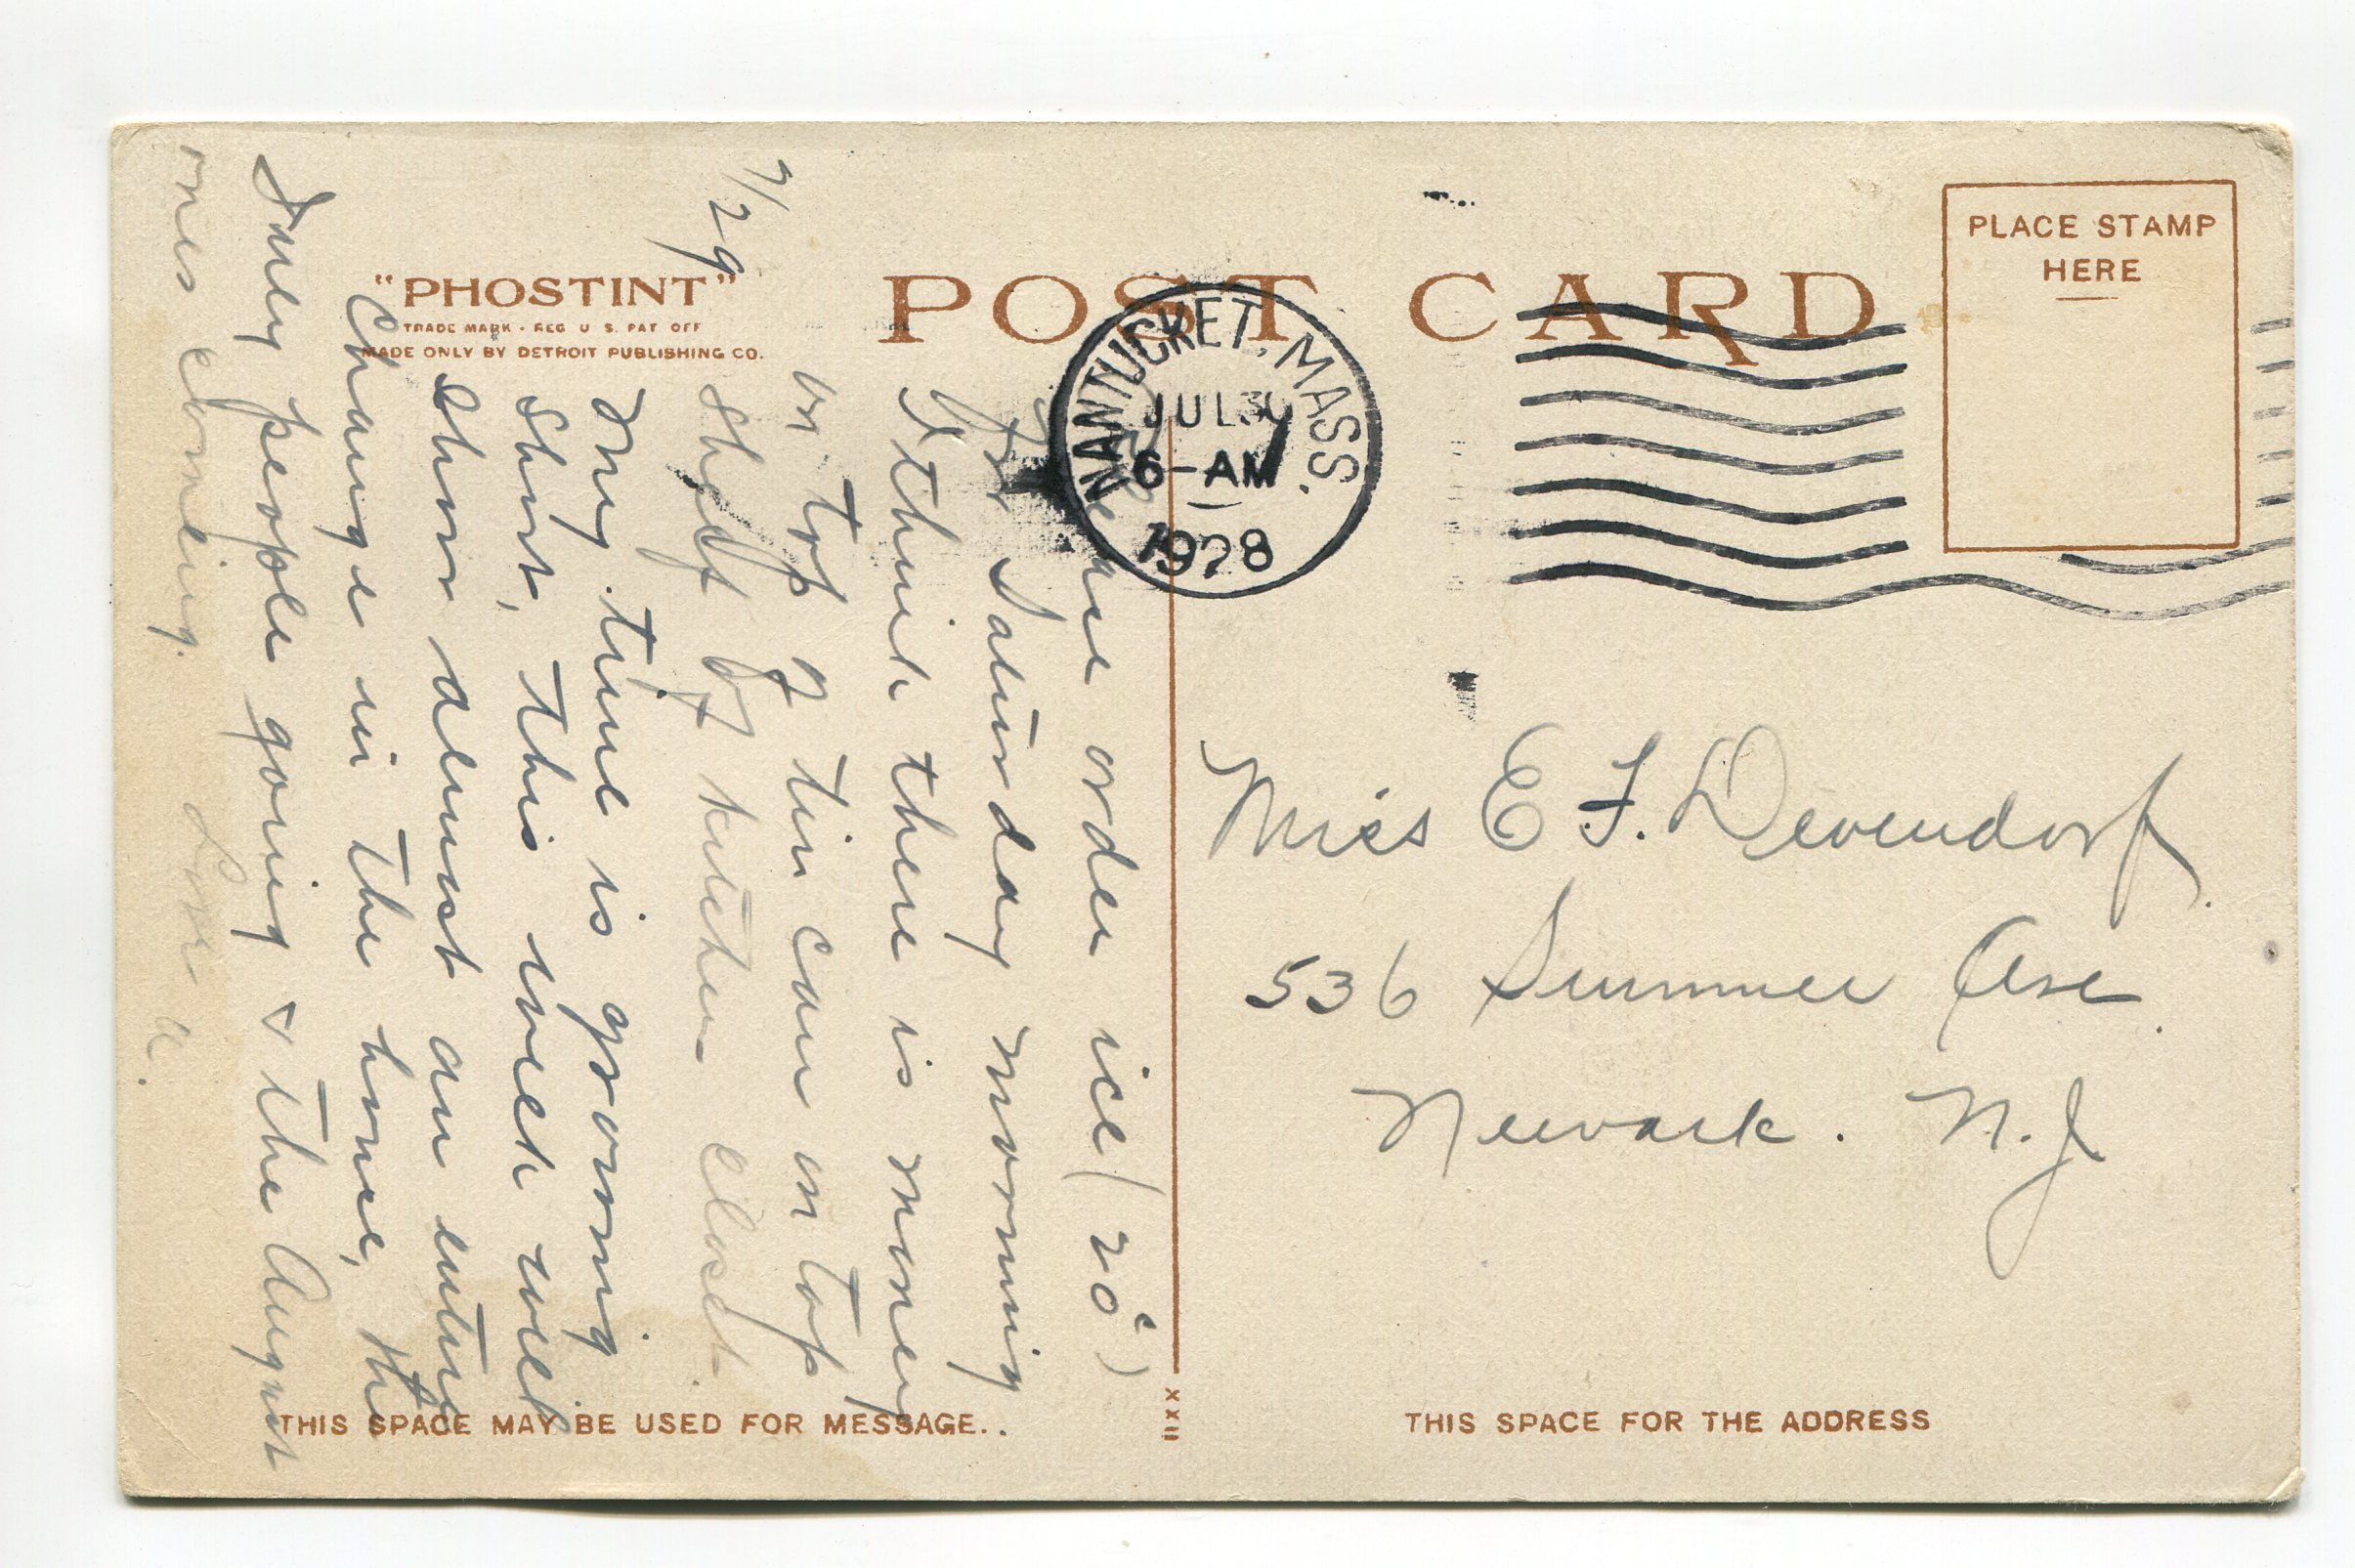 "PHOSTINT"
TRADE MARK · REG U S. PAT OFF
MADE ONLY BY DETROIT PUBLISHING CO.
POST CARD
PLACE STAMP
HERE
NANTUCKET, MASS.
JUL 30
6-AM
1928
7/29
Please order ice (20c)
for Saturday morning
I think there is money
on top of tin can on top
shelf of kitchen closet
My time is growing
short, this week will
show almost an entire
change in the home, the
July people going & the August
ones coming. Love A.
Miss E F. Devendorf.
536 Summer Ave.
Newark. N.J
THIS SPACE MAY BE USED FOR MESSAGE..
THIS SPACE FOR THE ADDRESS